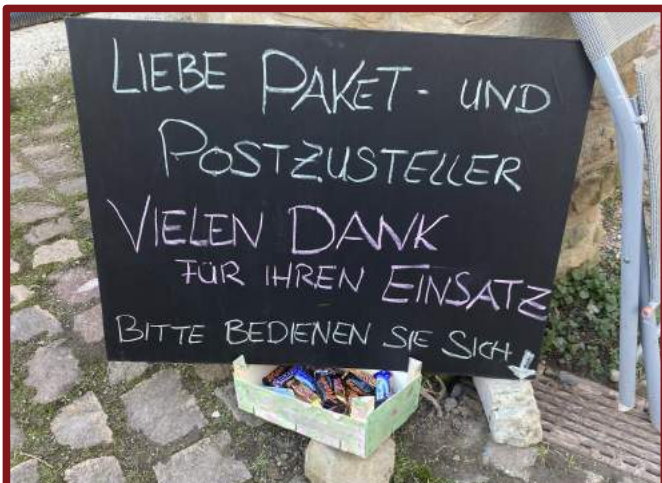 LIEBE PAKET- UND
POSTZUSTELLER
VIELEN DANK
FÜR IHREN EINSATZ
BITTE BEDIENEN SIE SICH